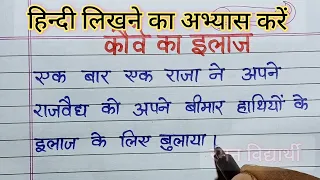 हिन्दी लिखने का अभ्यास करें
कौवे का इलाज
एक बार एक राजा ने अपने
राजवैद्य को अपने बीमार हाथियों के
इलाज के लिए बुलाया।
विद्यार्थी